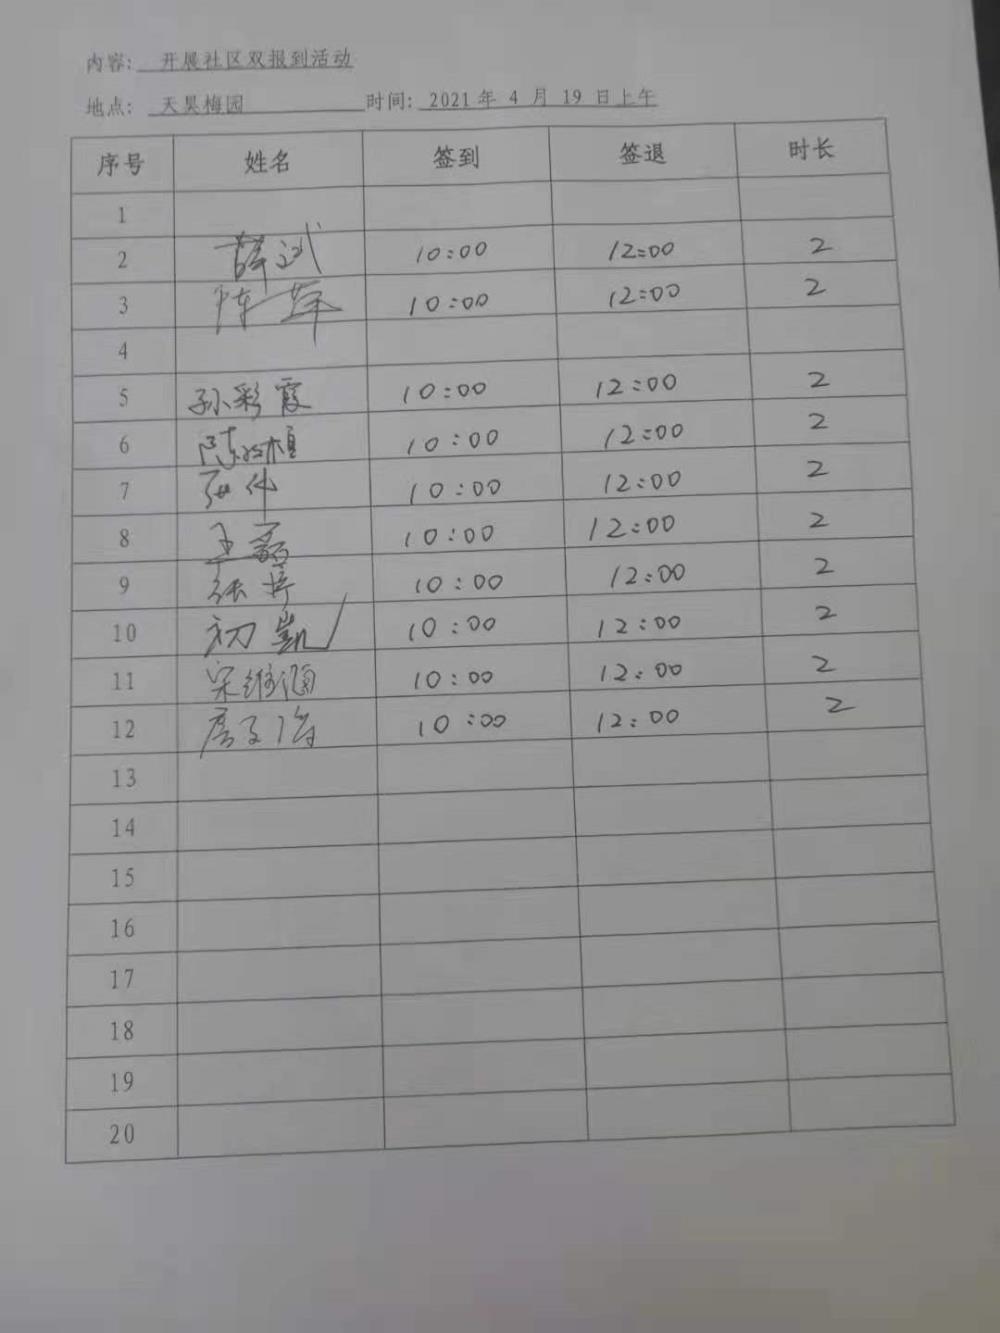 内容: 开展社区双报到活动
地点: 天昊梅园 时间: 2021年 4 月 19 日上午
序号 姓名 签到 签退 时长
1
2 薛斌 10:00 12:00 2
3 陈萍 10:00 12:00 2
4
5 孙彩霞 10:00 12:00 2
6 10:00 12:00 2
7 张伟 10:00 12:00 2
8 王磊 10:00 12:00 2
9 张婷 10:00 12:00 2
10 初凯 10:00 12:00 2
11 宋维涵 10:00 12:00 2
12 10:00 12:00 2
13
14
15
16
17
18
19
20